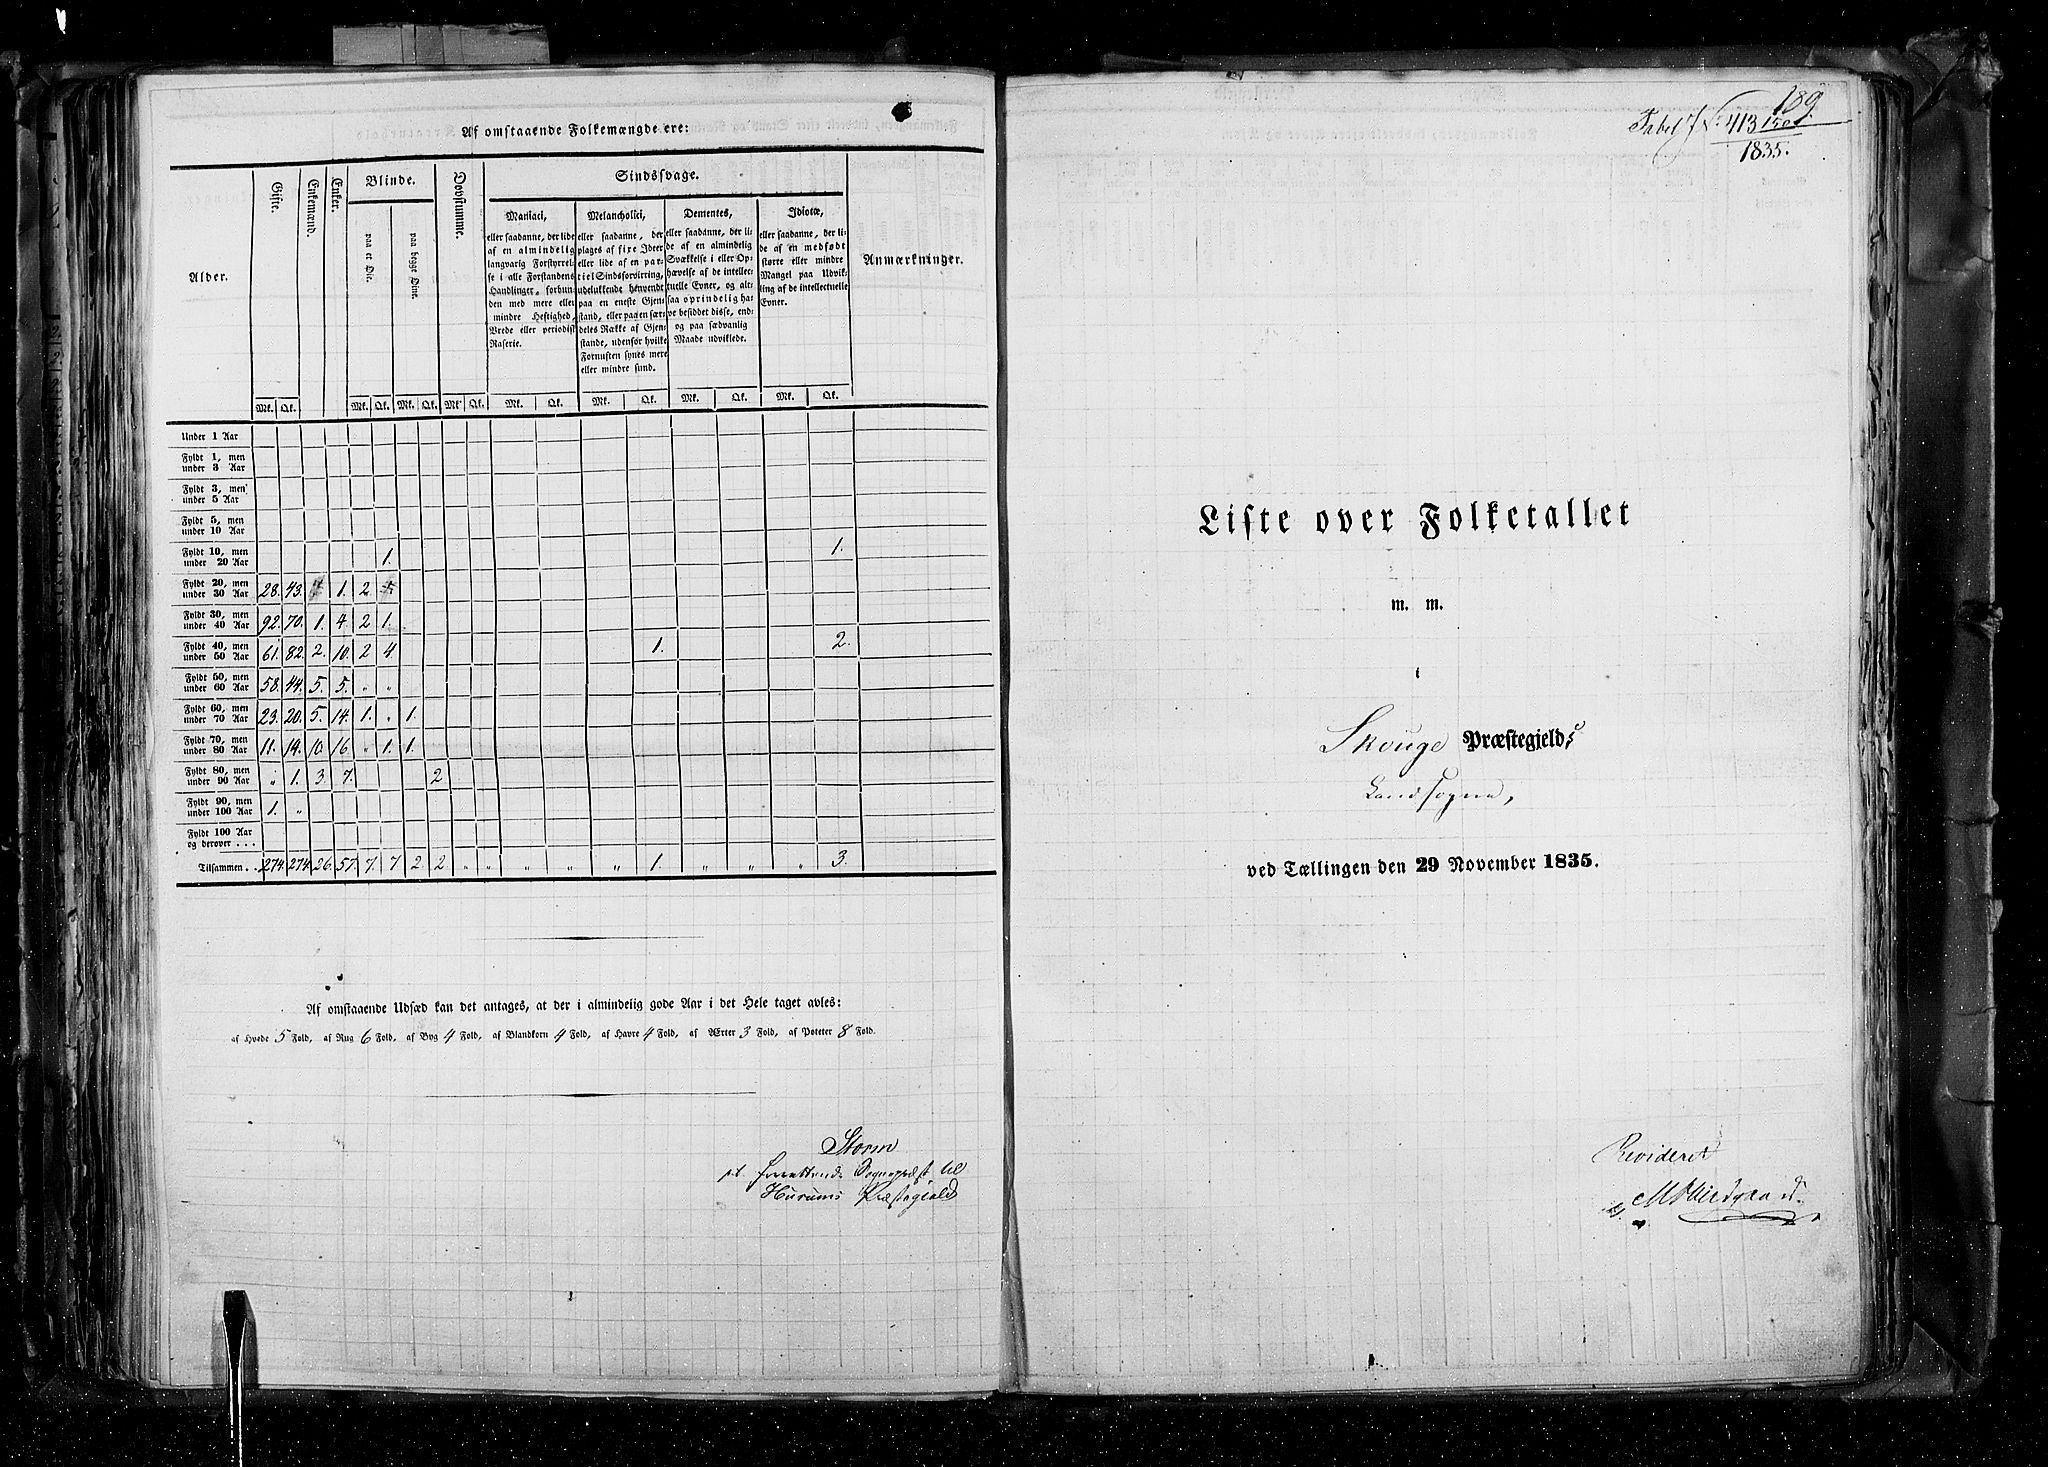 Af omstaaende Folkemængde ere:
Alder. Gifte. Enkemænd. Enker. Blinde. Dovstumme. Sindssvage. Anmærkninger.
paa et Øie. paa begge Øine.
Maniaci,
eller saadanne, der lide
af en almindelig
langvarig Forstyrrel-
se i alle Forstandens
Handlinger, forbun-
den med mere eller
mindre Heftighed,
Vrede eller periodisk
Raserie.
Melancholici,
eller saadanne, der
plages af fixe Ideer
eller lide af en par-
tiel Sindsforvirring,
udelukkende henvendt
paa en eneste Gjen-
stand, eller paa en sær-
deles Række af Gjen-
stande, udenfor hvilke
Fornuften synes mere
eller mindre sund.
Dementes,
eller saadanne, der li-
de af en almindelig
Svækkelse i eller Op-
hævelse af de intellec-
tuelle Evner, og alt-
saa oprindelig ha-
ve besiddet disse, end-
og paa sædvanlig
Maade udviklede.
Idiotæ,
eller saadanne, der li-
de af en medfødt
større eller mindre
Mangel paa Udvik-
ling af de intellectuelle
Evner.
Mk. Qk. Mk. Qk. Mk. Qk. Mk. Qk. Mk. Qk. Mk. Qk. Mk. Qk. Mk. Qk.
Under 1 Aar
Fyldt 1, men
under 3 Aar
Fyldt 3, men
under 5 Aar
Fyldt 5, men
under 10 Aar
Fyldt 10, men
under 20 Aar 1. 1.
Fyldt 20, men
under 30 Aar 28. 43. 1. 2
Fyldt 30, men
under 40 Aar 92. 70. 1. 4. 2 1.
Fyldt 40, men
under 50 Aar 61. 82. 2. 10. 2 4 1. 2.
Fyldt 50, men
under 60 Aar 58. 44. 5. 5. " "
Fyldt 60, men
under 70 Aar 23. 20. 5. 14. 1. " 1.
Fyldt 70, men
under 80 Aar 11. 14. 10. 16. " 1. 1.
Fyldt 80, men
under 90 Aar " 1. 3. 7. 2
Fyldt 90, men
under 100 Aar 1. "
Fyldt 100 Aar
og derover . . .
Tilsammen . . 274. 274. 26. 57. 7. 7 2. 2 " " " " " 1. " " " 3.
Af omstaaende Udsæd kan det antages, at der i almindelig gode Aar i det Hele taget avles:
af Hvede 5 Fold, af Rug 6 Fold, af Byg 4 Fold, af Blandkorn 4 Fold, af Havre 4 Fold, af Ærter 3 Fold, af Poteter 8 Fold.
Storm
Sognepræst til
Hurums Præstegjeld
189
Tabel No. 413
1835.
Liste over Folketallet
m. m.
i
Skouge Præstegjelds
Landsogne,
ved Tællingen den 29 November 1835.
Revideret